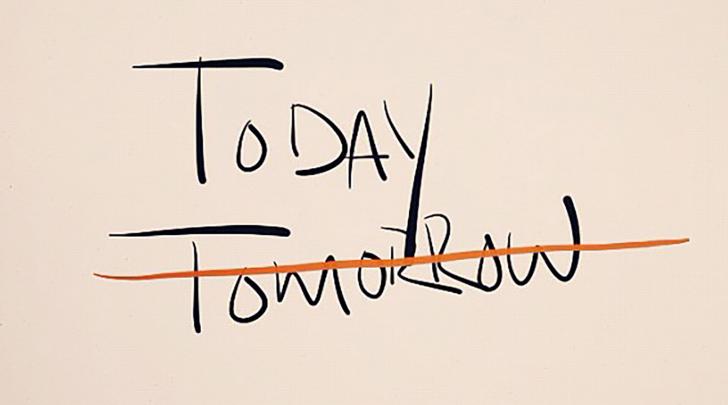 Today
Tomorrow